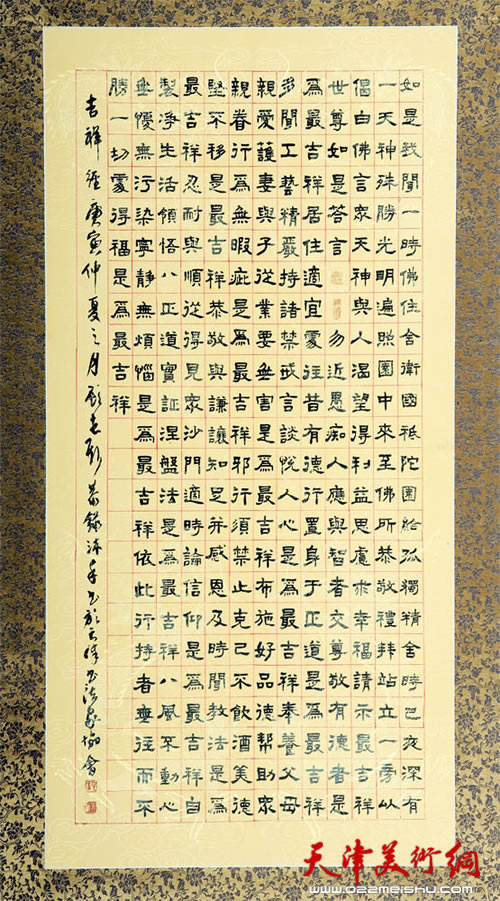 如是我聞一時佛住舍衛國祇陀園給孤獨精舍時已夜深有
一天神殊勝光明遍照園中來至佛所恭敬禮拜站立一旁以
偈白佛言眾天神與人渴望得利益思慮求幸福請示最吉祥
世尊如是答言勿近愚痴人應與智者交尊敬有德者是
為最吉祥居住適宜處往昔有德行置身于正道是為最吉祥
多聞工藝精嚴持諸禁戒言談悅人心是為最吉祥奉養父母
親愛護妻與子從業要無害是為最吉祥布施好品德幫助眾
親眷行為無暇疵是為最吉祥邪行須禁止克己不飲酒美德
堅不移是最吉祥恭敬與謙讓知足并感恩及時聞教法是為
最吉祥忍耐與順從得見眾沙門適時論信仰是為最吉祥自
製凈生活領悟八正道實証涅盤法是為最吉祥八風不動心
無憂無污染寧靜無煩惱是為最吉祥依此行持者無往而不
勝一切處得福是為最吉祥
吉祥經庚寅仲夏之月 恭錄 書於天津書法家協會
天津美術網
www.022meishu.com